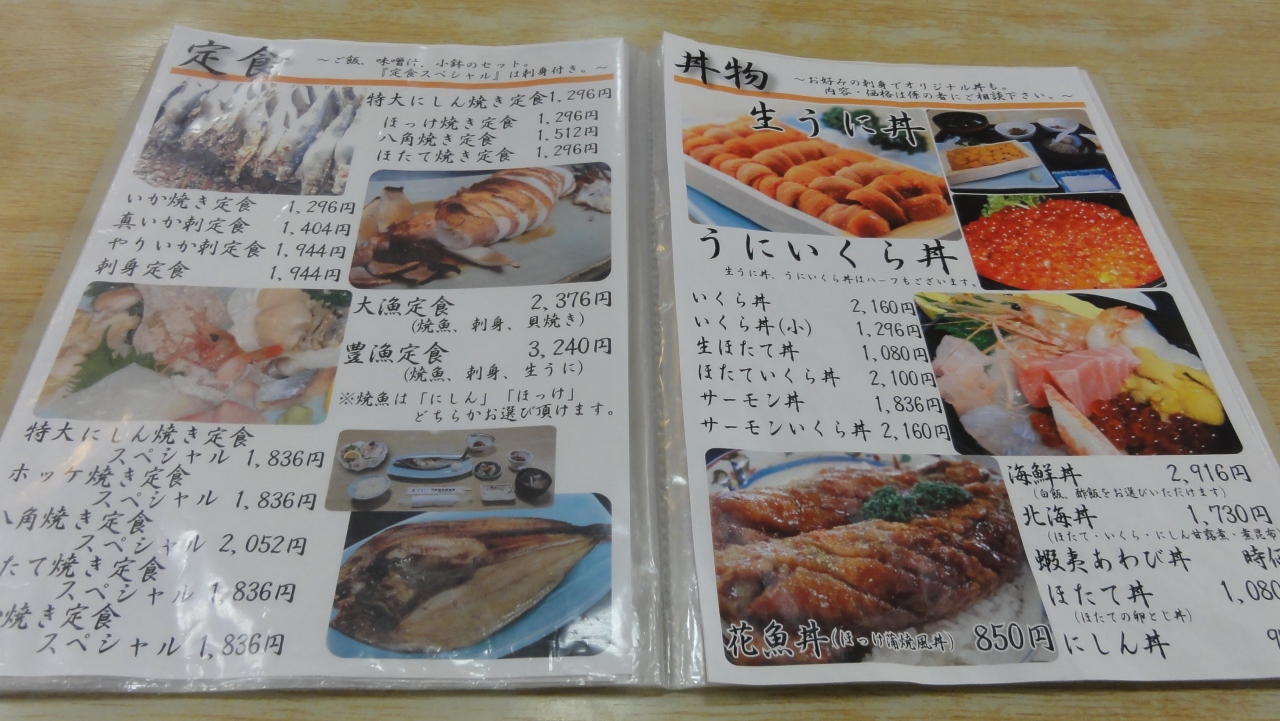 定食
～ご飯、味噌汁、小鉢のセット。
『定食スペシャル』は刺身付き。～
特大にしん焼き定食 1,296円
ほっけ焼き定食 1,296円
八角焼き定食 1,512円
ほたて焼き定食 1,296円
いか焼き定食 1,296円
真いか刺定食 1,404円
やりいか刺定食 1,944円
刺身定食 1,944円
大漁定食 2,376円
(焼魚、刺身、貝焼き)
豊漁定食 3,240円
(焼魚、刺身、生うに)
※焼魚は「にしん」「ほっけ」
どちらかお選び頂けます。
特大にしん焼き定食
スペシャル 1,836円
ホッケ焼き定食
スペシャル 1,836円
八角焼き定食
スペシャル 2,052円
たて焼き定食
スペシャル 1,836円
焼き定食
スペシャル 1,836円
丼物
～お好みの刺身でオリジナル丼も。
内容・価格は係の者にご相談下さい。～
生うに丼
うにいくら丼
生うに丼、うにいくら丼はハーフもございます。
いくら丼 2,160円
いくら丼(小) 1,296円
生ほたて丼 1,080円
ほたていくら丼 2,100円
サーモン丼 1,836円
サーモンいくら丼 2,160円
花魚丼(ほっけ蒲焼風丼) 850円
海鮮丼 2,916円
(白飯、酢飯をお選びいただけます)
北海丼 1,730円
(ほたて・いくら・にしん甘露煮・煮昆布
蝦夷あわび丼 時価
ほたて丼 1,080
(ほたての卵とじ丼)
にしん丼 9